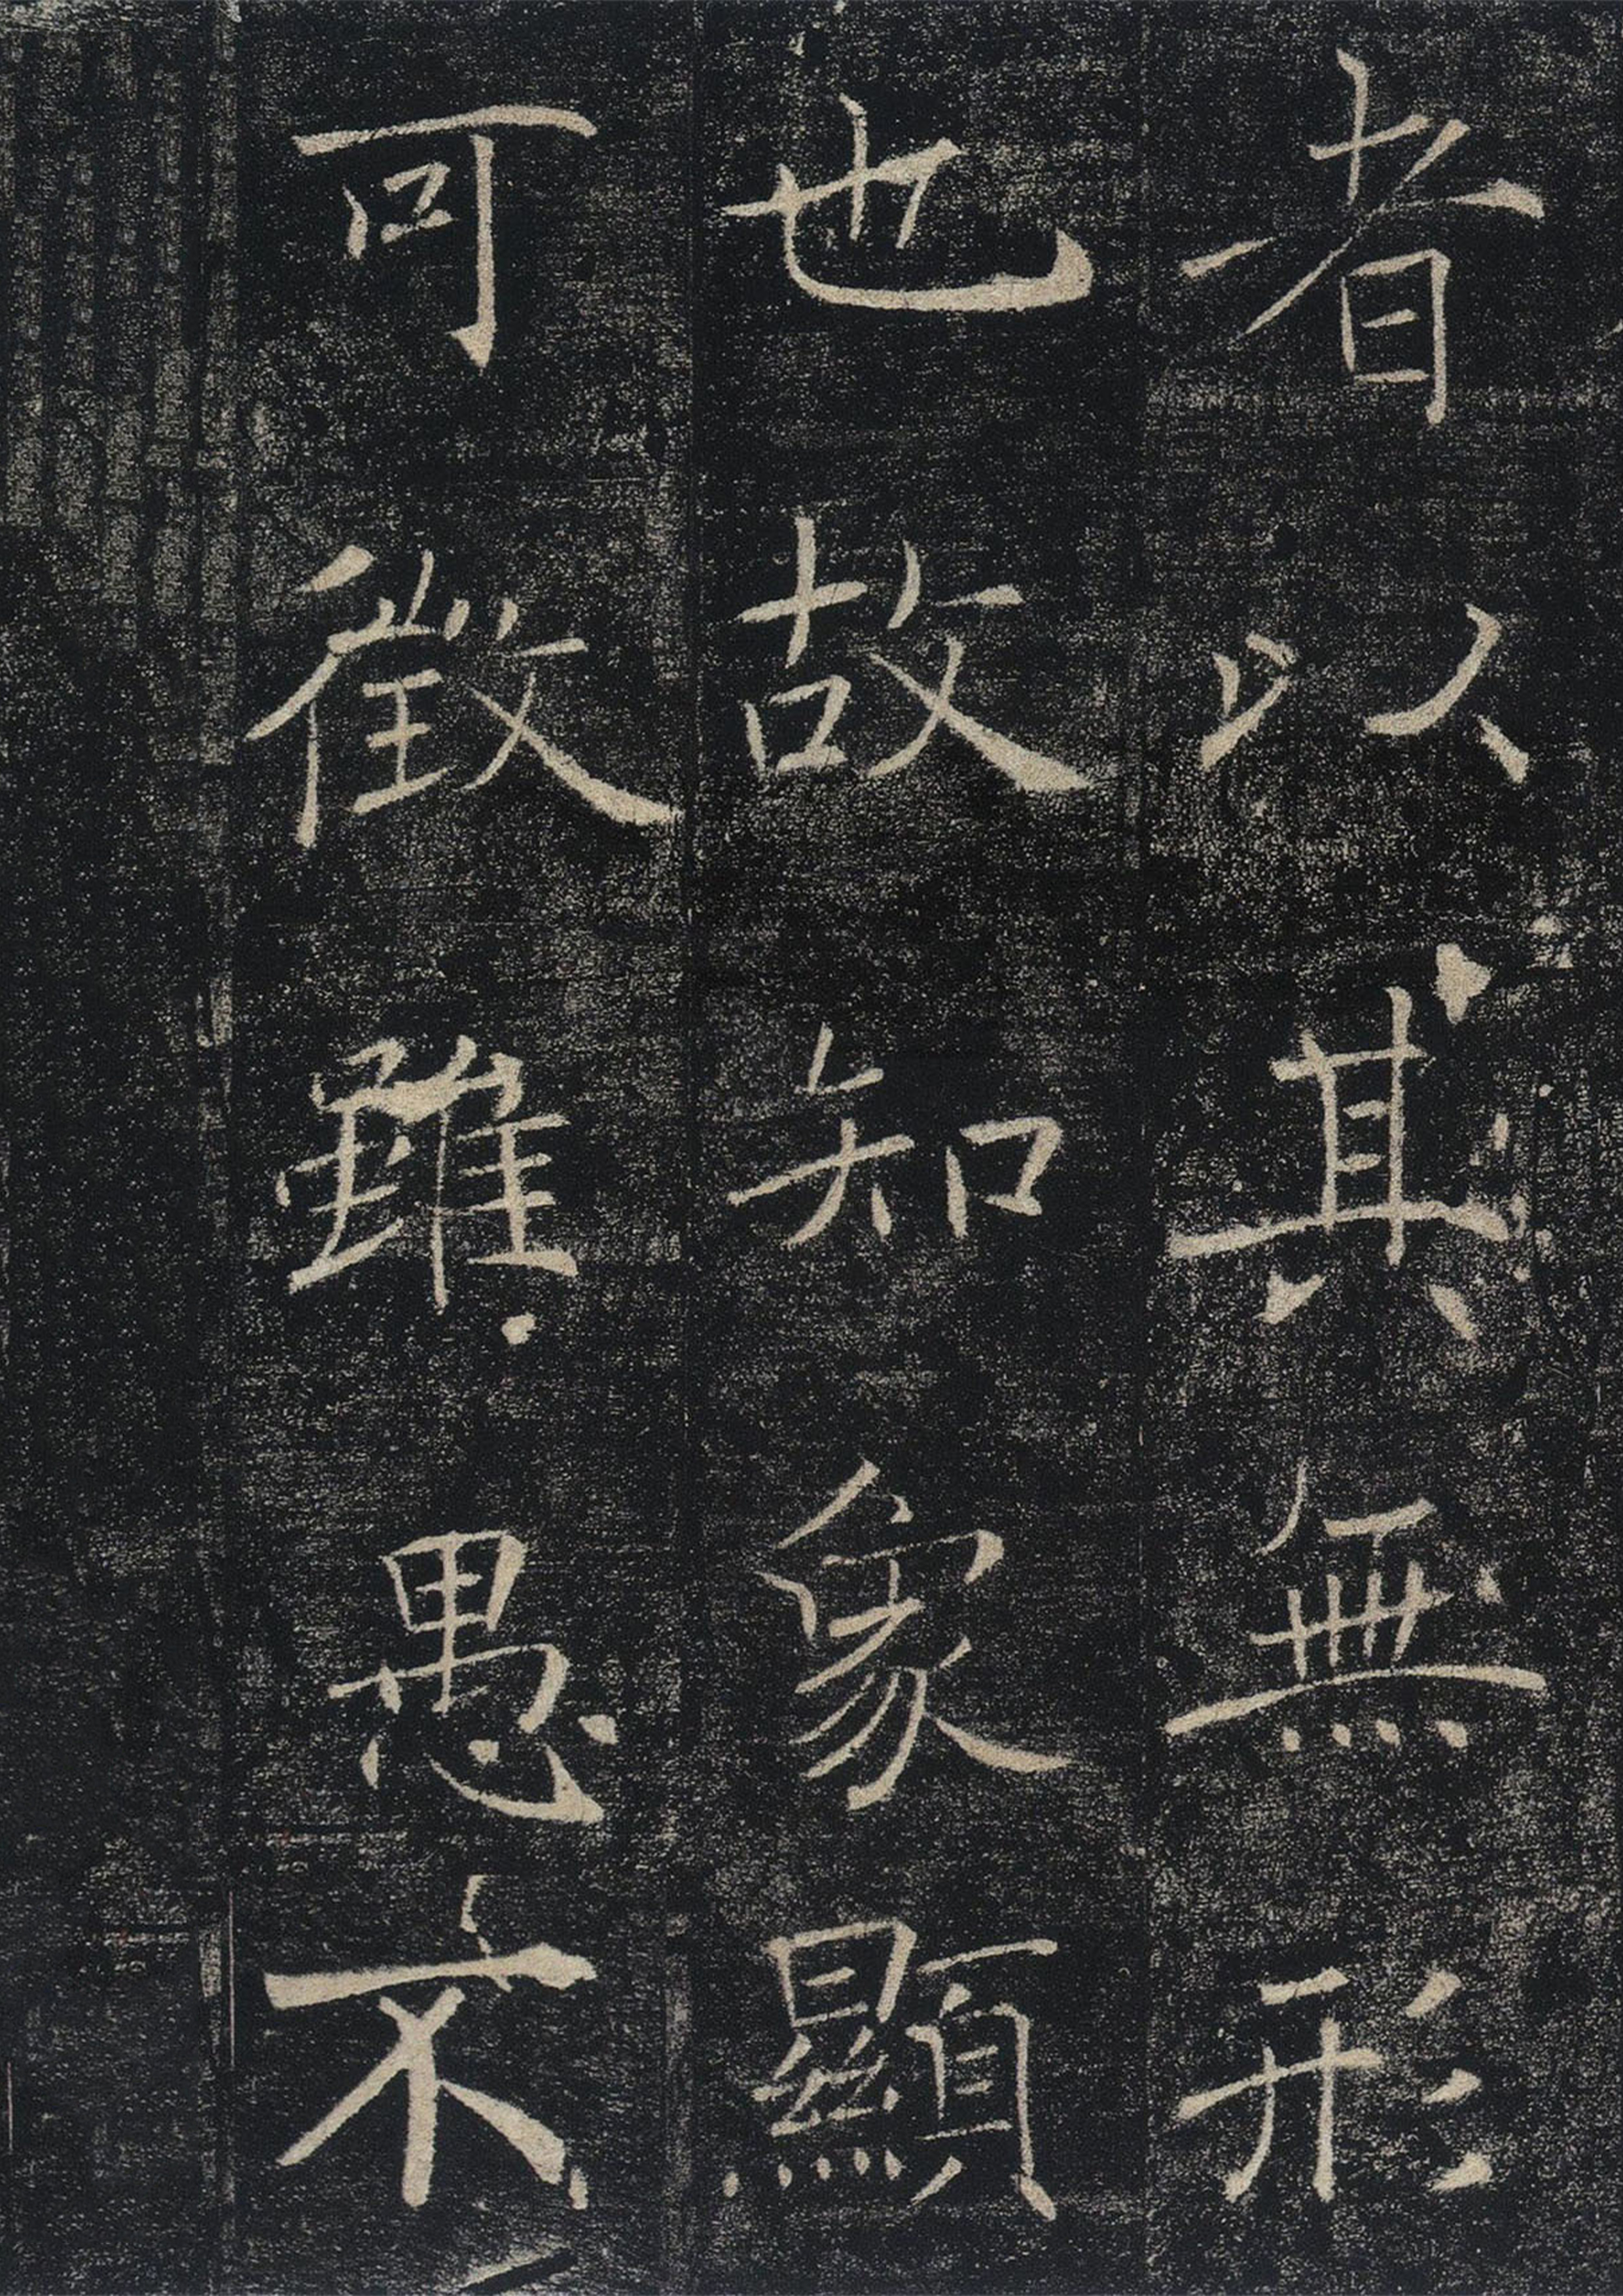 者以其無形
也故知象顯
可徵雖愚不